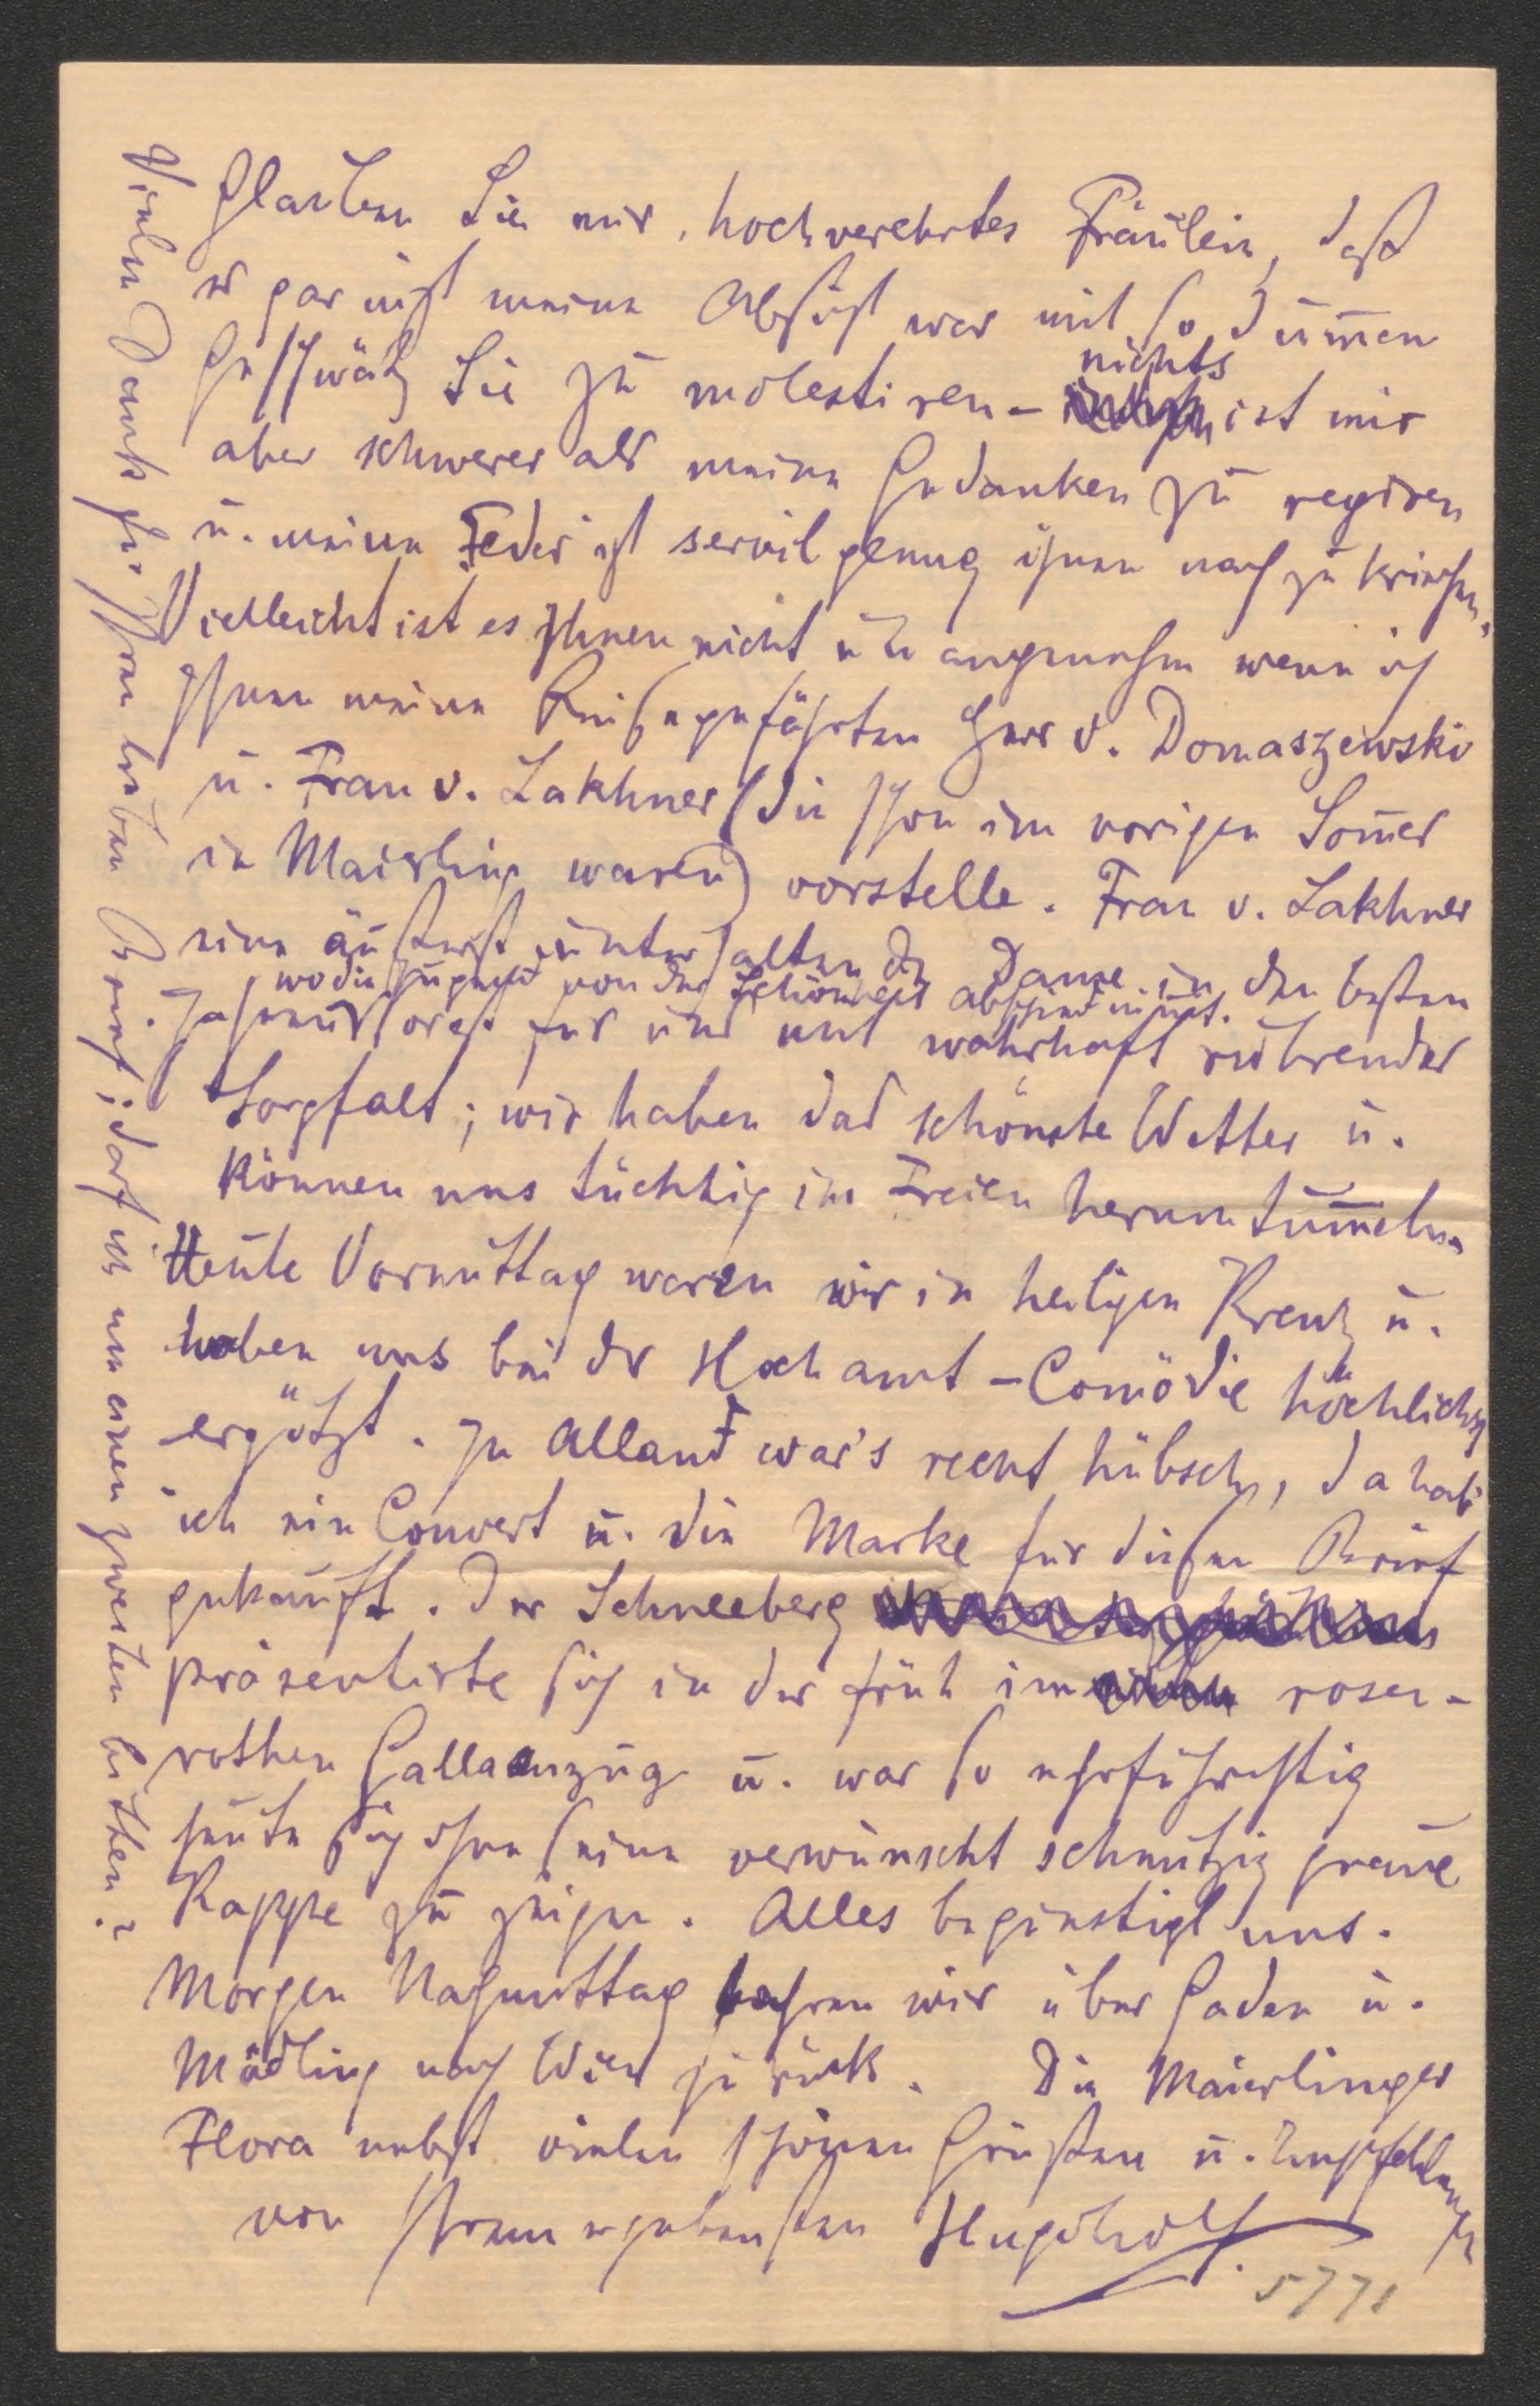 Glauben Sie mir, hochverehrtes Fräulein, daß
es gar nicht meine Absicht war mit so dum̅en
Geschwätz Sie zu molestiren – nichts ist mir
aber schwerer als meine Gedanken zu regiren
u. meine Feder ist servil genug ihnen nach zu kriechen.
Vielleicht ist es Ihnen nicht unangenehm wenn ich
Ihnen meine Reisegefährten Herr v. Domaszewski
u. Frau v. Lakhner (die schon im vorigen Som̅er
in Maierling waren) vorstelle. Frau v. Lakhner
eine äußerst unterhaltende Dame in den besten
Jahren, wo die Jugend von der Schönheit abschied nim̅t.
sorgt für uns mit wahrhaft rührender
Sorgfalt; wir haben das schönste Wetter u.
können uns tüchtig im Freien herumtum̅eln.
Heute Vormittag waren wir in heiligen Kreuz u.
haben uns bei der Hochamt-Comödie höchlichst
ergötzt. In Alland war's recht hübsch, da hab'
ich ein Couvert u. die Marke für diesen Brief
gekauft. Der Schneeberg
präsentirte sich in der früh im rosen-
rothen Gallaanzug u. war so ehrfürchtig
heute sich ohne seine verwünscht schmutzig graue
Kappe zu zeigen. Alles begünstigt uns.
Morgen Nachmittag fahren wir über Gaden u.
Mödling nach Wien zurück. Die Maierlinger
Flora nebst vielen schönen Grüßen u. Empfehlungen
von Ihrem ergebensten Hugo Wolf.
5771
Vielen Dank für Ihren lieben Brief; darf ich um einen zweiten bitten?